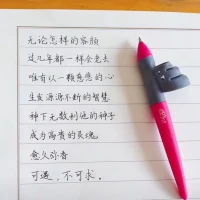 无论怎样的容颜
过几年都一样会老去
唯有以一颗慈悲的心
生发源源不断的智慧
种下无数利他的种子
成为高贵的灵魂
愈久弥香
可遇，不可求。